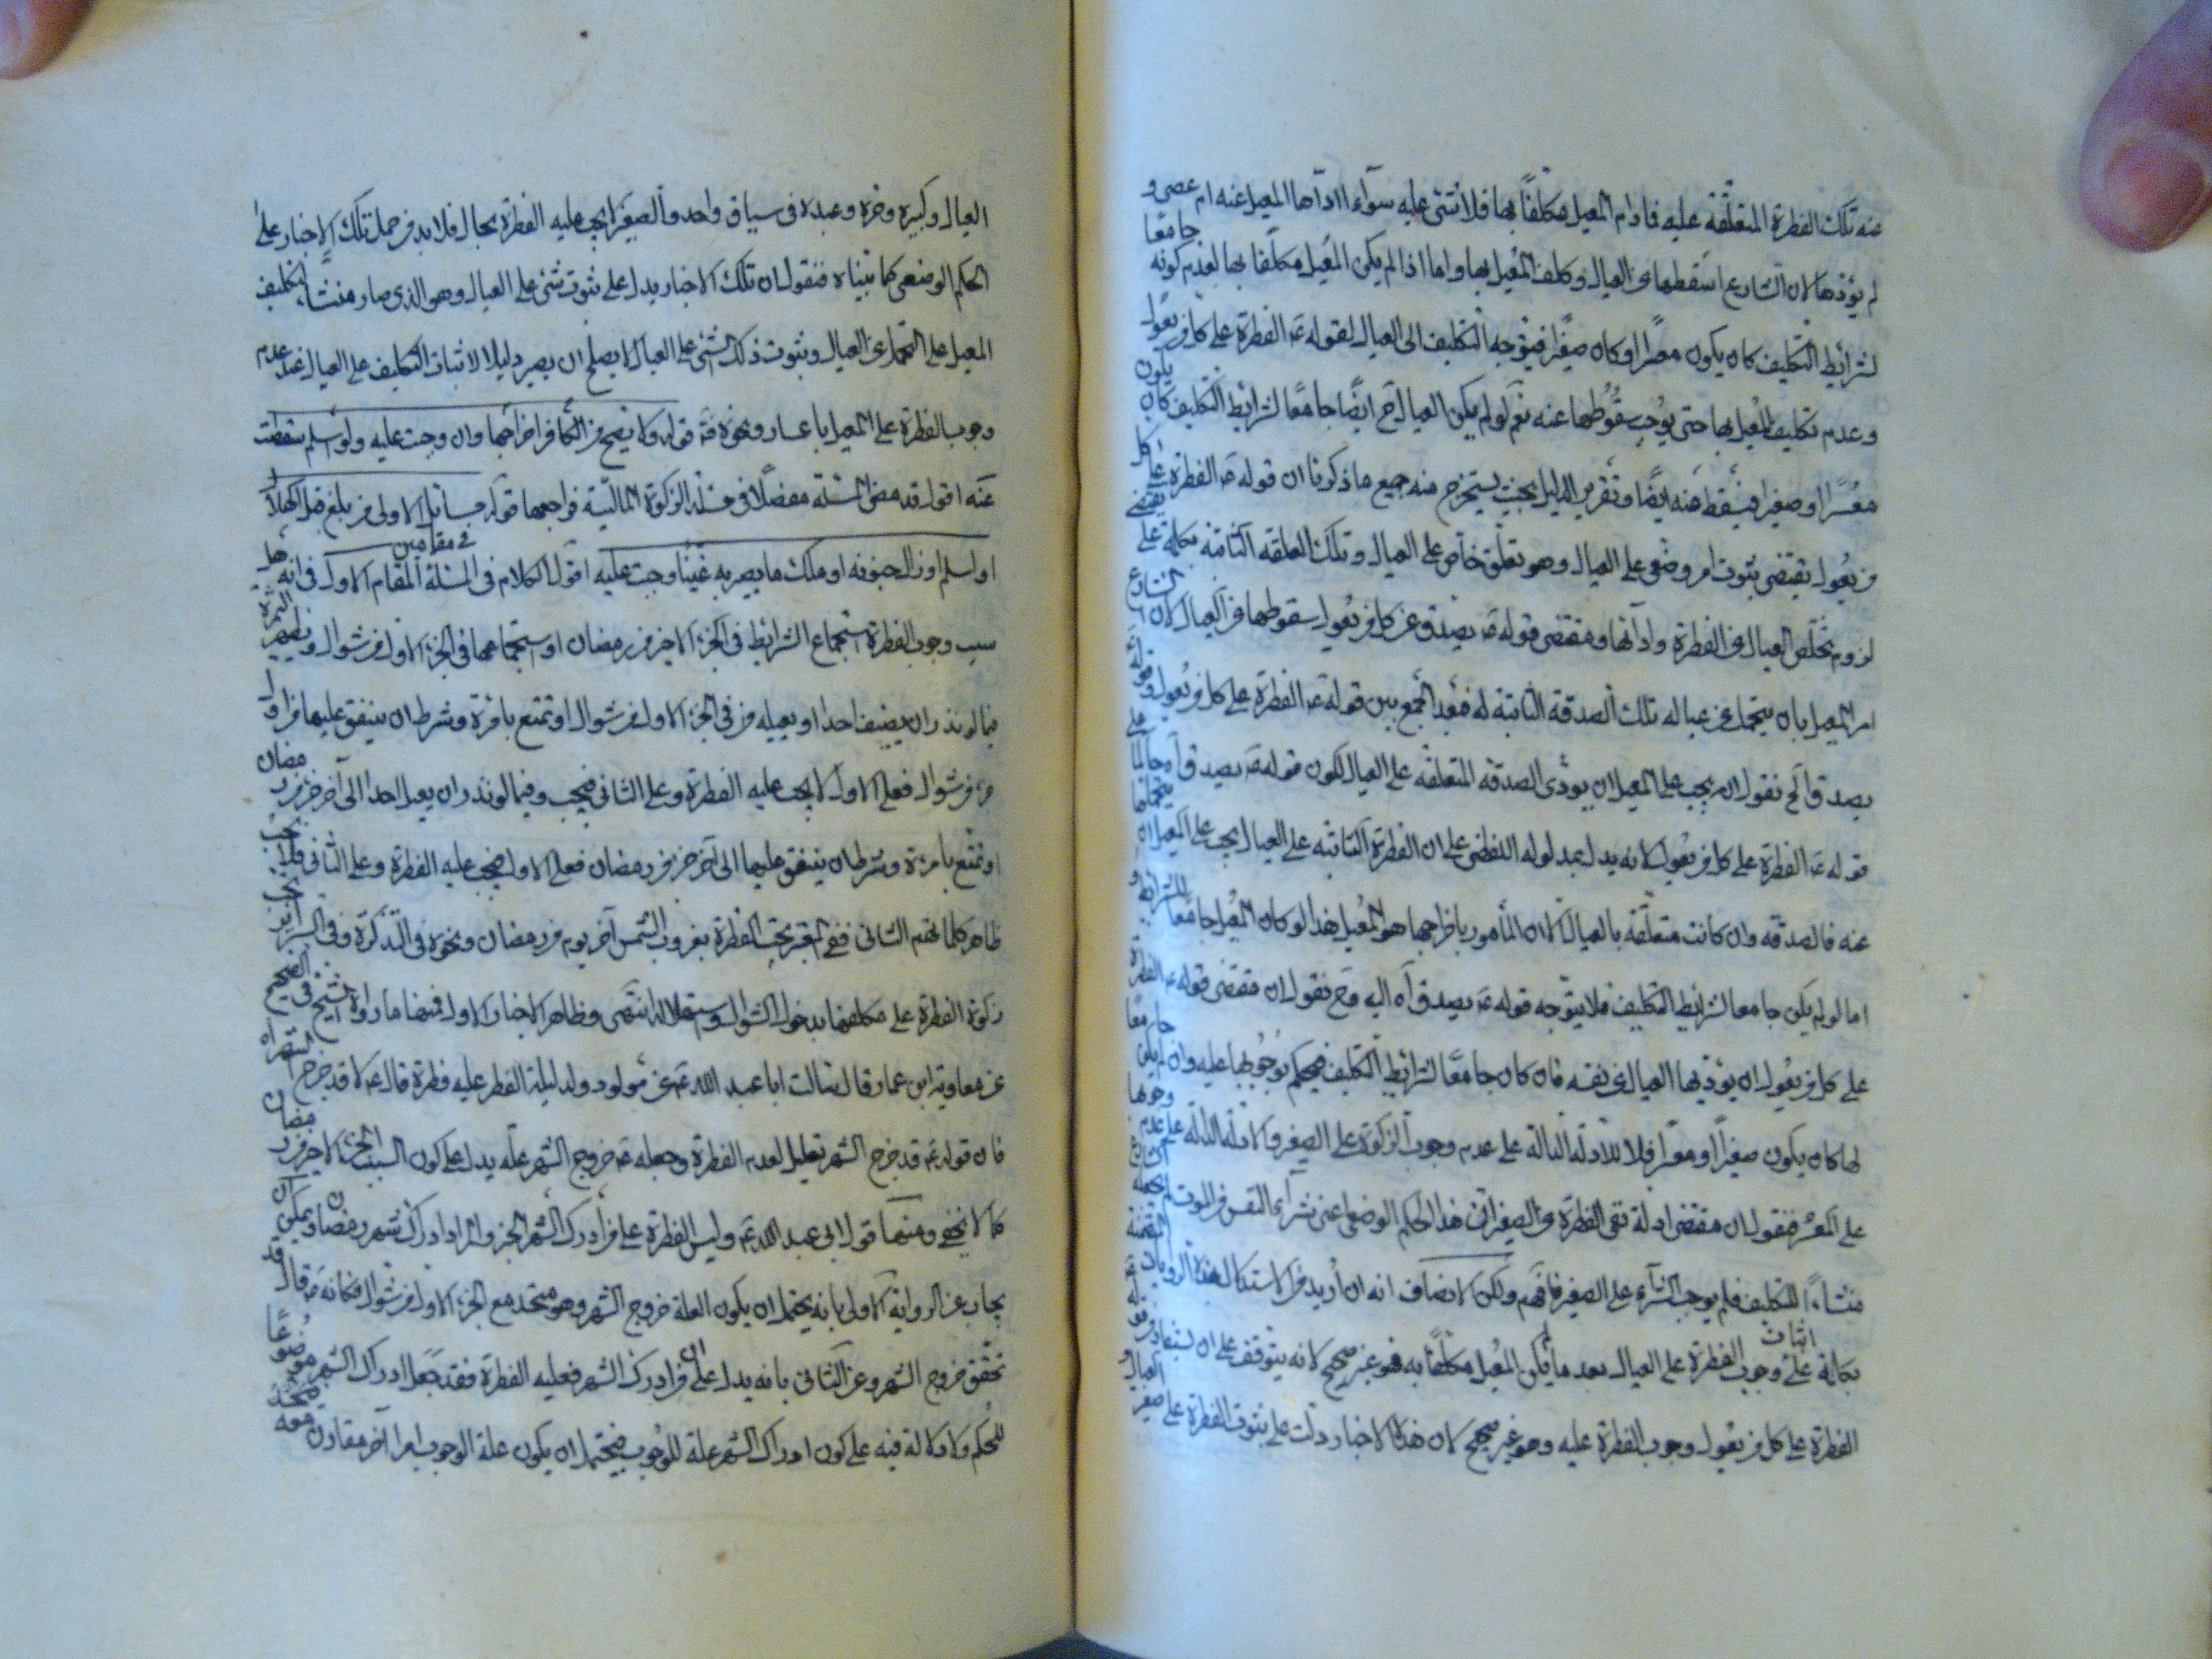 عنه تلك الفطرة المتعلقة عليه فمادام المعيل مكلفا بها فلا شئ عليه سوآء ادّاها المعيل عنه ام عصى و
لم يؤدها لان الشارع اسقطها عن العيال وكلف المعيل بها واما اذا لم يكن المعيل مكلفا بها لعدم كونه جامعًا
لشرائط التكليف كان يكون معسرا او كان صغيرا فيتوجه التكليف الى العيال لقوله عه الفطرة على كل من يعول
وعدم تكليف المعيل بها حتى يوجب سقوطها عنه نعم لو لم يكن العيال ح ايضًا جامعًا لشرائط التكليف كان يكون
معسرًا او صغيرا فيسقط عنه ايضًا وتقرير الدليل بحيث يستخرج منه جميع ما ذكرنا ان قوله عه الفطرة على كل
من يعول يقتضى ثبوت امر وضعى على العيال وهو تعلق خاص على العيال وتلك العلقة الثابتة بحالة على يقتضى
لزوم تخلص العيال عن الفطرة وادآئها ومقتضى قوله عه يصدق عن كل من يعول سقوطها من العيال لان الشارع
امر المعيل بان يتحمل عن عياله تلك الصدقة الثابتة له فبعد الجمع بين قوله عه الفطرة على كل من يعول وقوله
يصدق الخ نقول انه يجب على المعيل ان يؤدى الصدقة المتعلقة على العيال لكون قوله عه يصدق آه حاكما على
قوله عه الفطرة على كل من يعول لانه يدل بمدلوله اللفظى على ان الفطرة الثابتة على العيال يجب على المعيل ان يتحملها
عنه فالصدقة وان كانت متعلقة بالعيال الا ان المأمور باخراجها هو المعيل هذا لو كان المعيل جامعا للشرائط و
اما لو لم يكن جامعا لشرائط التكليف فلا يتوجه قوله عه يصدق آه اليه وح نقول ان مقتضى قوله عه الفطرة
على كل من يعول ان يؤديها العيال عن نفسه فان كان جامعًا لشرائط التكليف فيحكم بوجوبها عليه وان لم يكن جامعًا
لها كان يكون صغيرًا او معسرا فلا للادلة الدالة على عدم وجوب الزكوة على الصغير والادلة الدالة على عدم وجوبها
على المعسر فنقول ان مقتضى ادلة نفى الفطرة عن الصغير ان هذا الحكم الوضعى اعنى شرآء النفس من الموت لم يجعله الشارع
منشاءًا للتكليف فلم يوجب الشرآء على الصغير فافهم ولكن الانصاف انه ان اريد من الاستدلال بهذه الروايات المتضمنة
بحالة على اثبات وجوب الفطرة على العيال بعد ما لم يكن المعيل مكلفًا به فهو غير صحيح لانه يتوقف على ان يستفاد من قوله عه
الفطرة على كل من يعول وجوب الفطرة عليه وهو غير صحيح لان هذه الاخبار دلت على ثبوت الفطرة على صغير العيال و
العيال وكبيره وحره وعبده فى سياق واحد والصغير لا يجب عليه الفطرة بحال فلا بد من حمل تلك الاخبار على
الحكم الوضعى كما بيّناه فنقول ان تلك الاخبار يدل على ثبوت شئ على العيال وهو الذى صار منشاءً لتكليف
المعيل على التحمل عن العيال وثبوت ذلك الشئ على العيال لا يصلح ان يصير دليلا لاثبات التكليف على العيال عند عدم
وجوب الفطرة على المعيل باعسار ونحوه قوله ولا يصح من الكافر اخراجها وان وجبت عليه ولو اسلم سقطت
عنه اقول قد مضى المسئلة مفصلًا فى مسئلة الزكوة المالية فراجعها قوله مسائل الاولى من بلغ قبل الهلال
او اسلم او زال جنونه او ملك ما يصير به غنيًا وجبت عليه اقول الكلام فى المسئلة فى مقامين المقام الاول فى انه هل
سبب وجوب الفطرة استجماع الشرائط فى الجزء الاخير من رمضان او استجماعها فى الجزء الاول من شوال ويظهر الثمرة
فيما لو نذر ان يضيف احدا او يعيله من فى الجزء الاول من شوال او تمتع بامرئة وشرط ان ينفق عليها من اول
جزء من شوال فعلى الاول لا يجب عليه الفطرة وعلى الثانى فيجب وفيما لو نذر ان يعيل احدا الى آخر جزء من رمضان
او تمتع بامرئة وشرط ان ينفق عليها الى آخر جزء من رمضان فعلى الاول فيجب عليه الفطرة وعلى الثانى فلا يجب
ظاهر كلماتهم الثانى ففى المعتبر تجب الفطرة بغروب الشمس آخر يوم من رمضان ونحوه فى التذكرة وفى السرائر يجب
زكوة الفطرة على مكلفها بدخول الشوال واستهلاله انتهى وظاهر الاخبار الاول فمنها ما رواه الشيخ فى الصحيح
عن معاوية ابن عمار قال سالت ابا عبد الله عه عن مولود ولد ليلة الفطر عليه فطرة قال عه لا قد خرج الشهر آه
فان قوله عه قد خرج الشهر تعليل لعدم الفطرة وجعله عه خروج الشهر علة يدل على كون السبب الجزء الاخير من رمضان
كما لا يخفى ومنها قول ابى عبد الله عه وليس الفطرة على من ادرك الشهر الخبر والمراد ادراك شهر رمضان ويمكن ان
يجاب عن الرواية الاولى بانه يحتمل ان يكون العلة خروج الشهر وهو متحد مع الجزء الاول من شوال فكانه عه قال قد
تحقق خروج الشهر وعن الثانى بانه يدل على ان من ادرك الشهر فعليه الفطرة فقد جعل ادراك الشهر موضوعًا
للحكم ولا دلالة فيه على كون ادراك الشهر علة للوجوب فيحتمل ان يكون علة الوجوب امرا آخر مقارن معه متحد